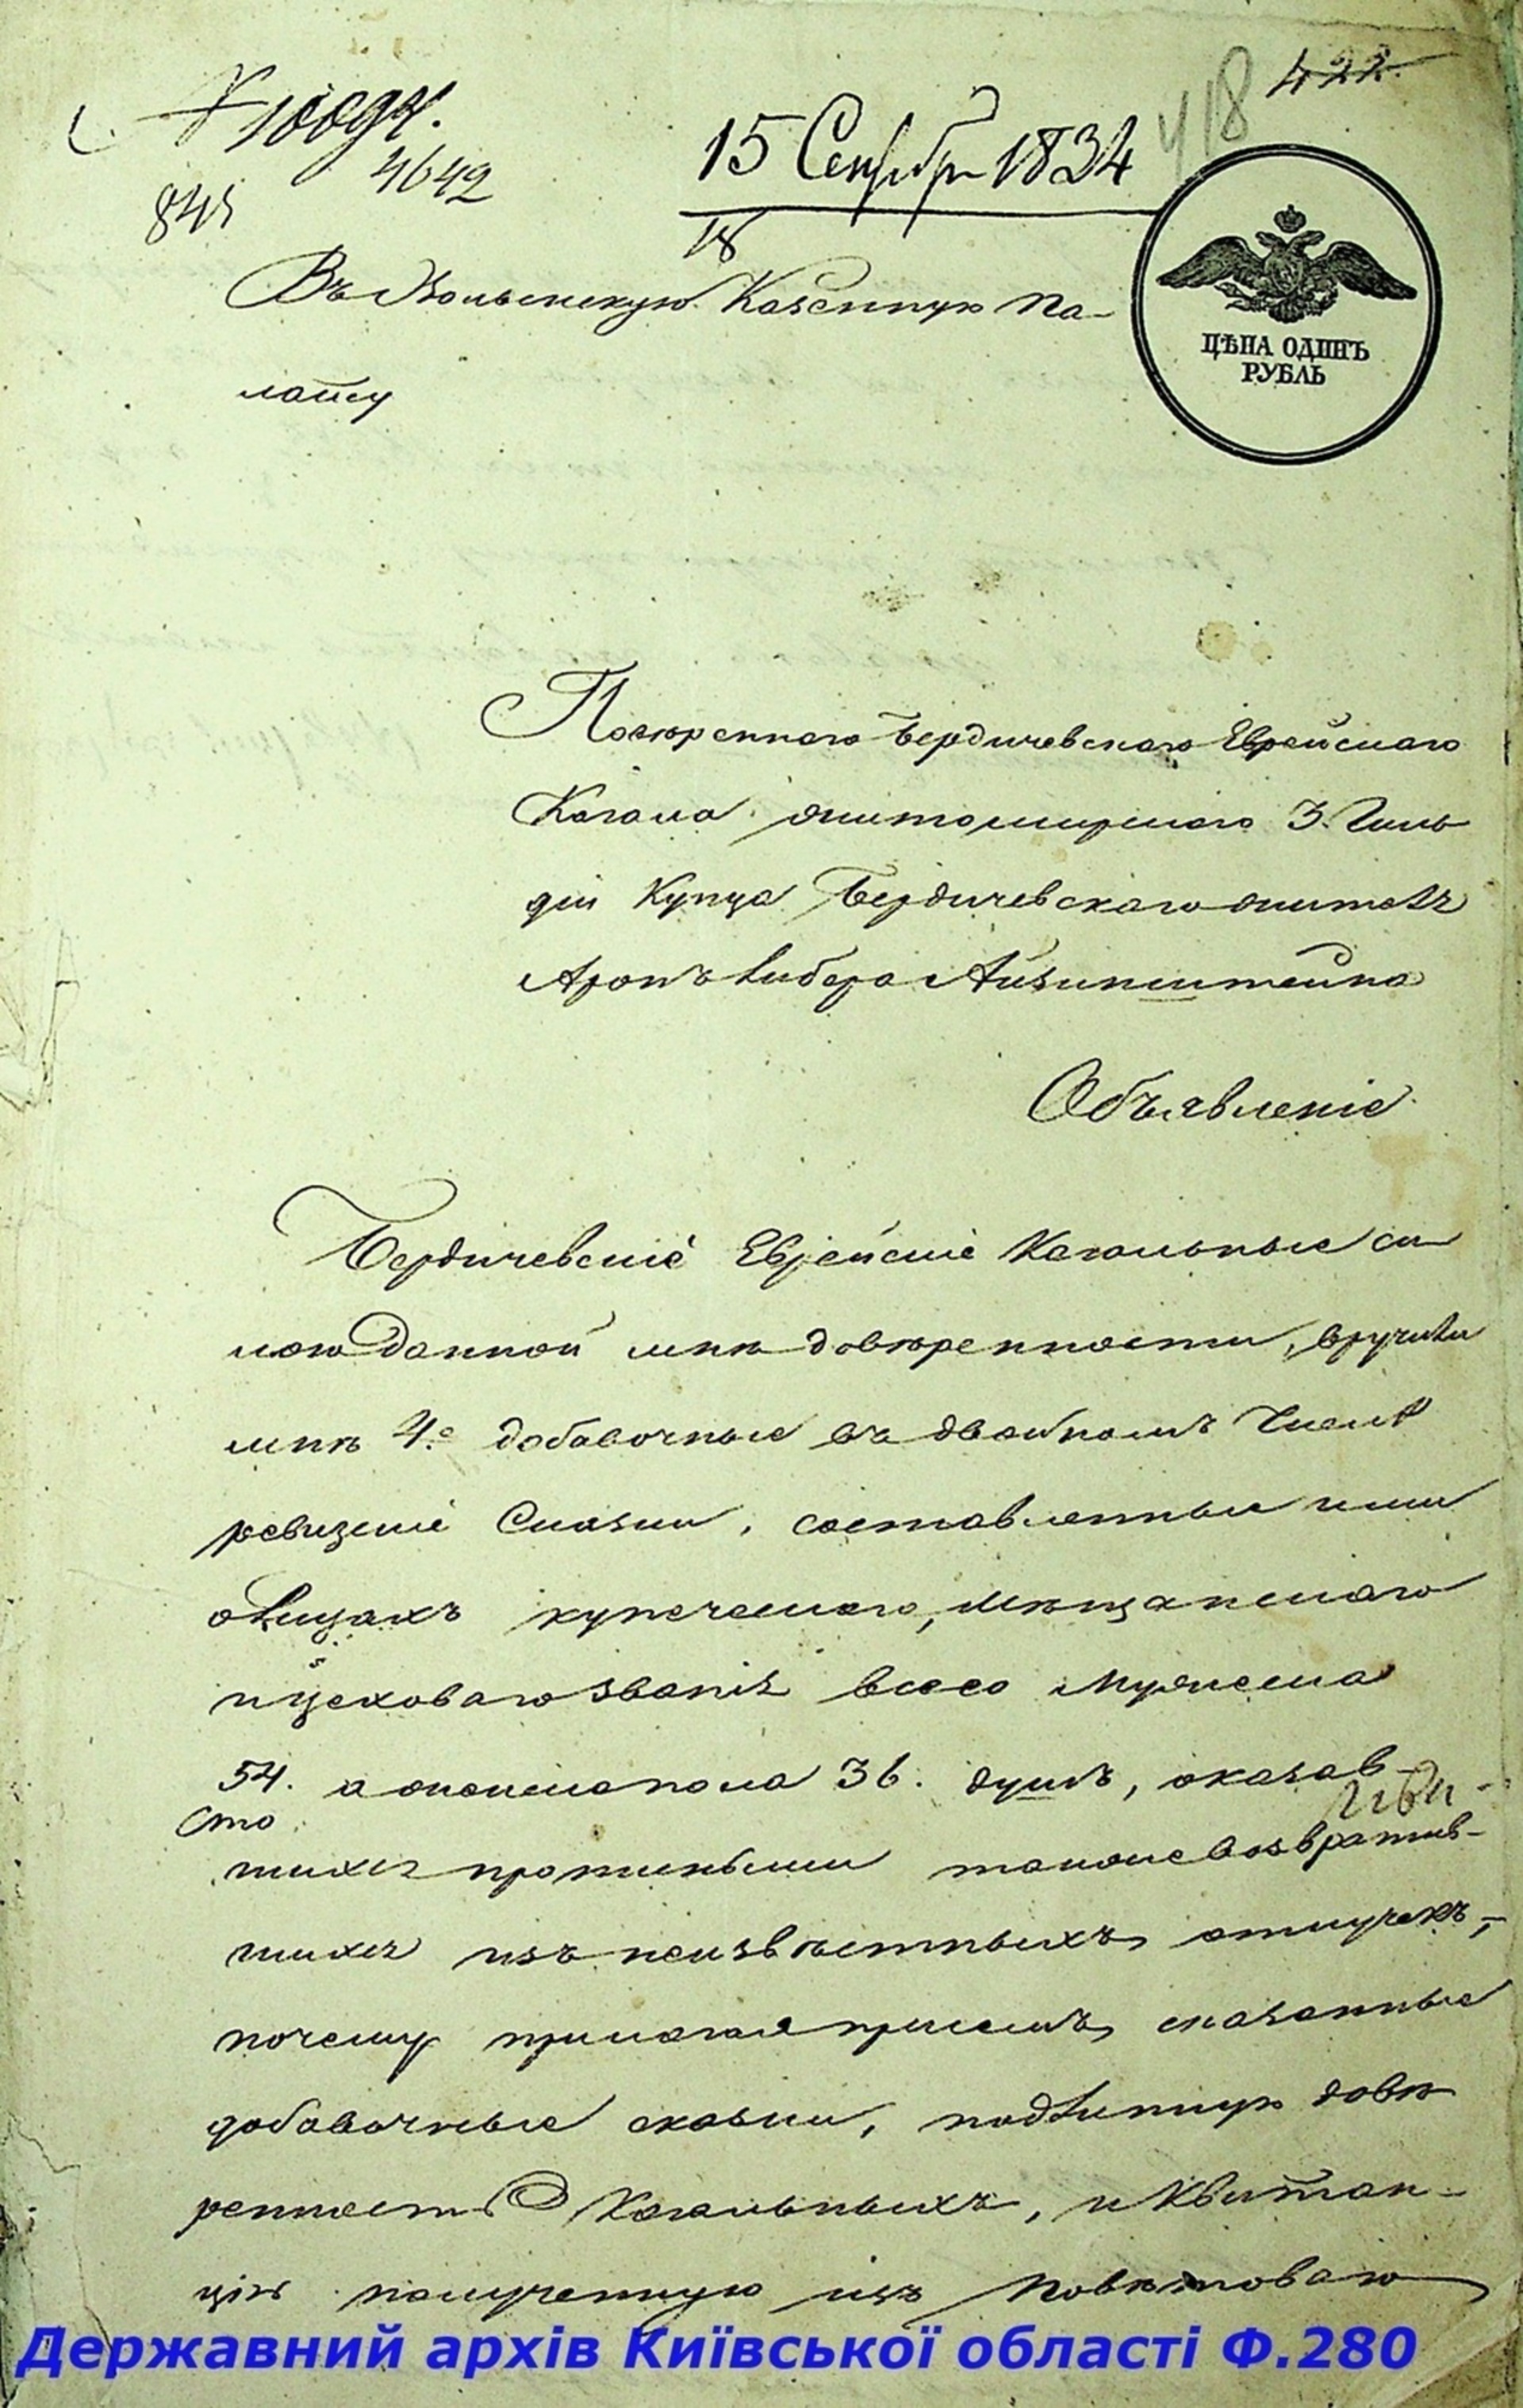 422
418
4642
845
15 Сентбр 1834
18
ЦѢНА ОДИНЪ
РУБЛЬ
Въ Волынскую Казенную Па-
лату
Повѣреннаго Бердичевскаго Еврейскаго
Кагала житомирскаго 3. Гиль
діи Купца Бердичевскаго жителя
Аронъ Либера Айзинштейна
Объявленіе
Бердичевскіе Еврейскіе Кагальные си
лою данной мнѣ довѣренности, вручили
мнѣ 4.е добавочные въ двойномъ Числѣ
ревизскіе Сказки, составленные ими
о лицахъ купеческаго, мѣщанскаго
и цеховаго званія всего мужеска
54. а женска пола 36. душъ, оказав-
шихся прописными также возвратив-
шихся изъ неизвѣстныхъ отлучекъ,-
почему прилагая при семъ сказанные
добавочные сказки, подлинную довѣ
ренность Кагальныхъ, и Квитан-
цію полученную изъ Повѣтоваго
Державний архів Київської області Ф.280